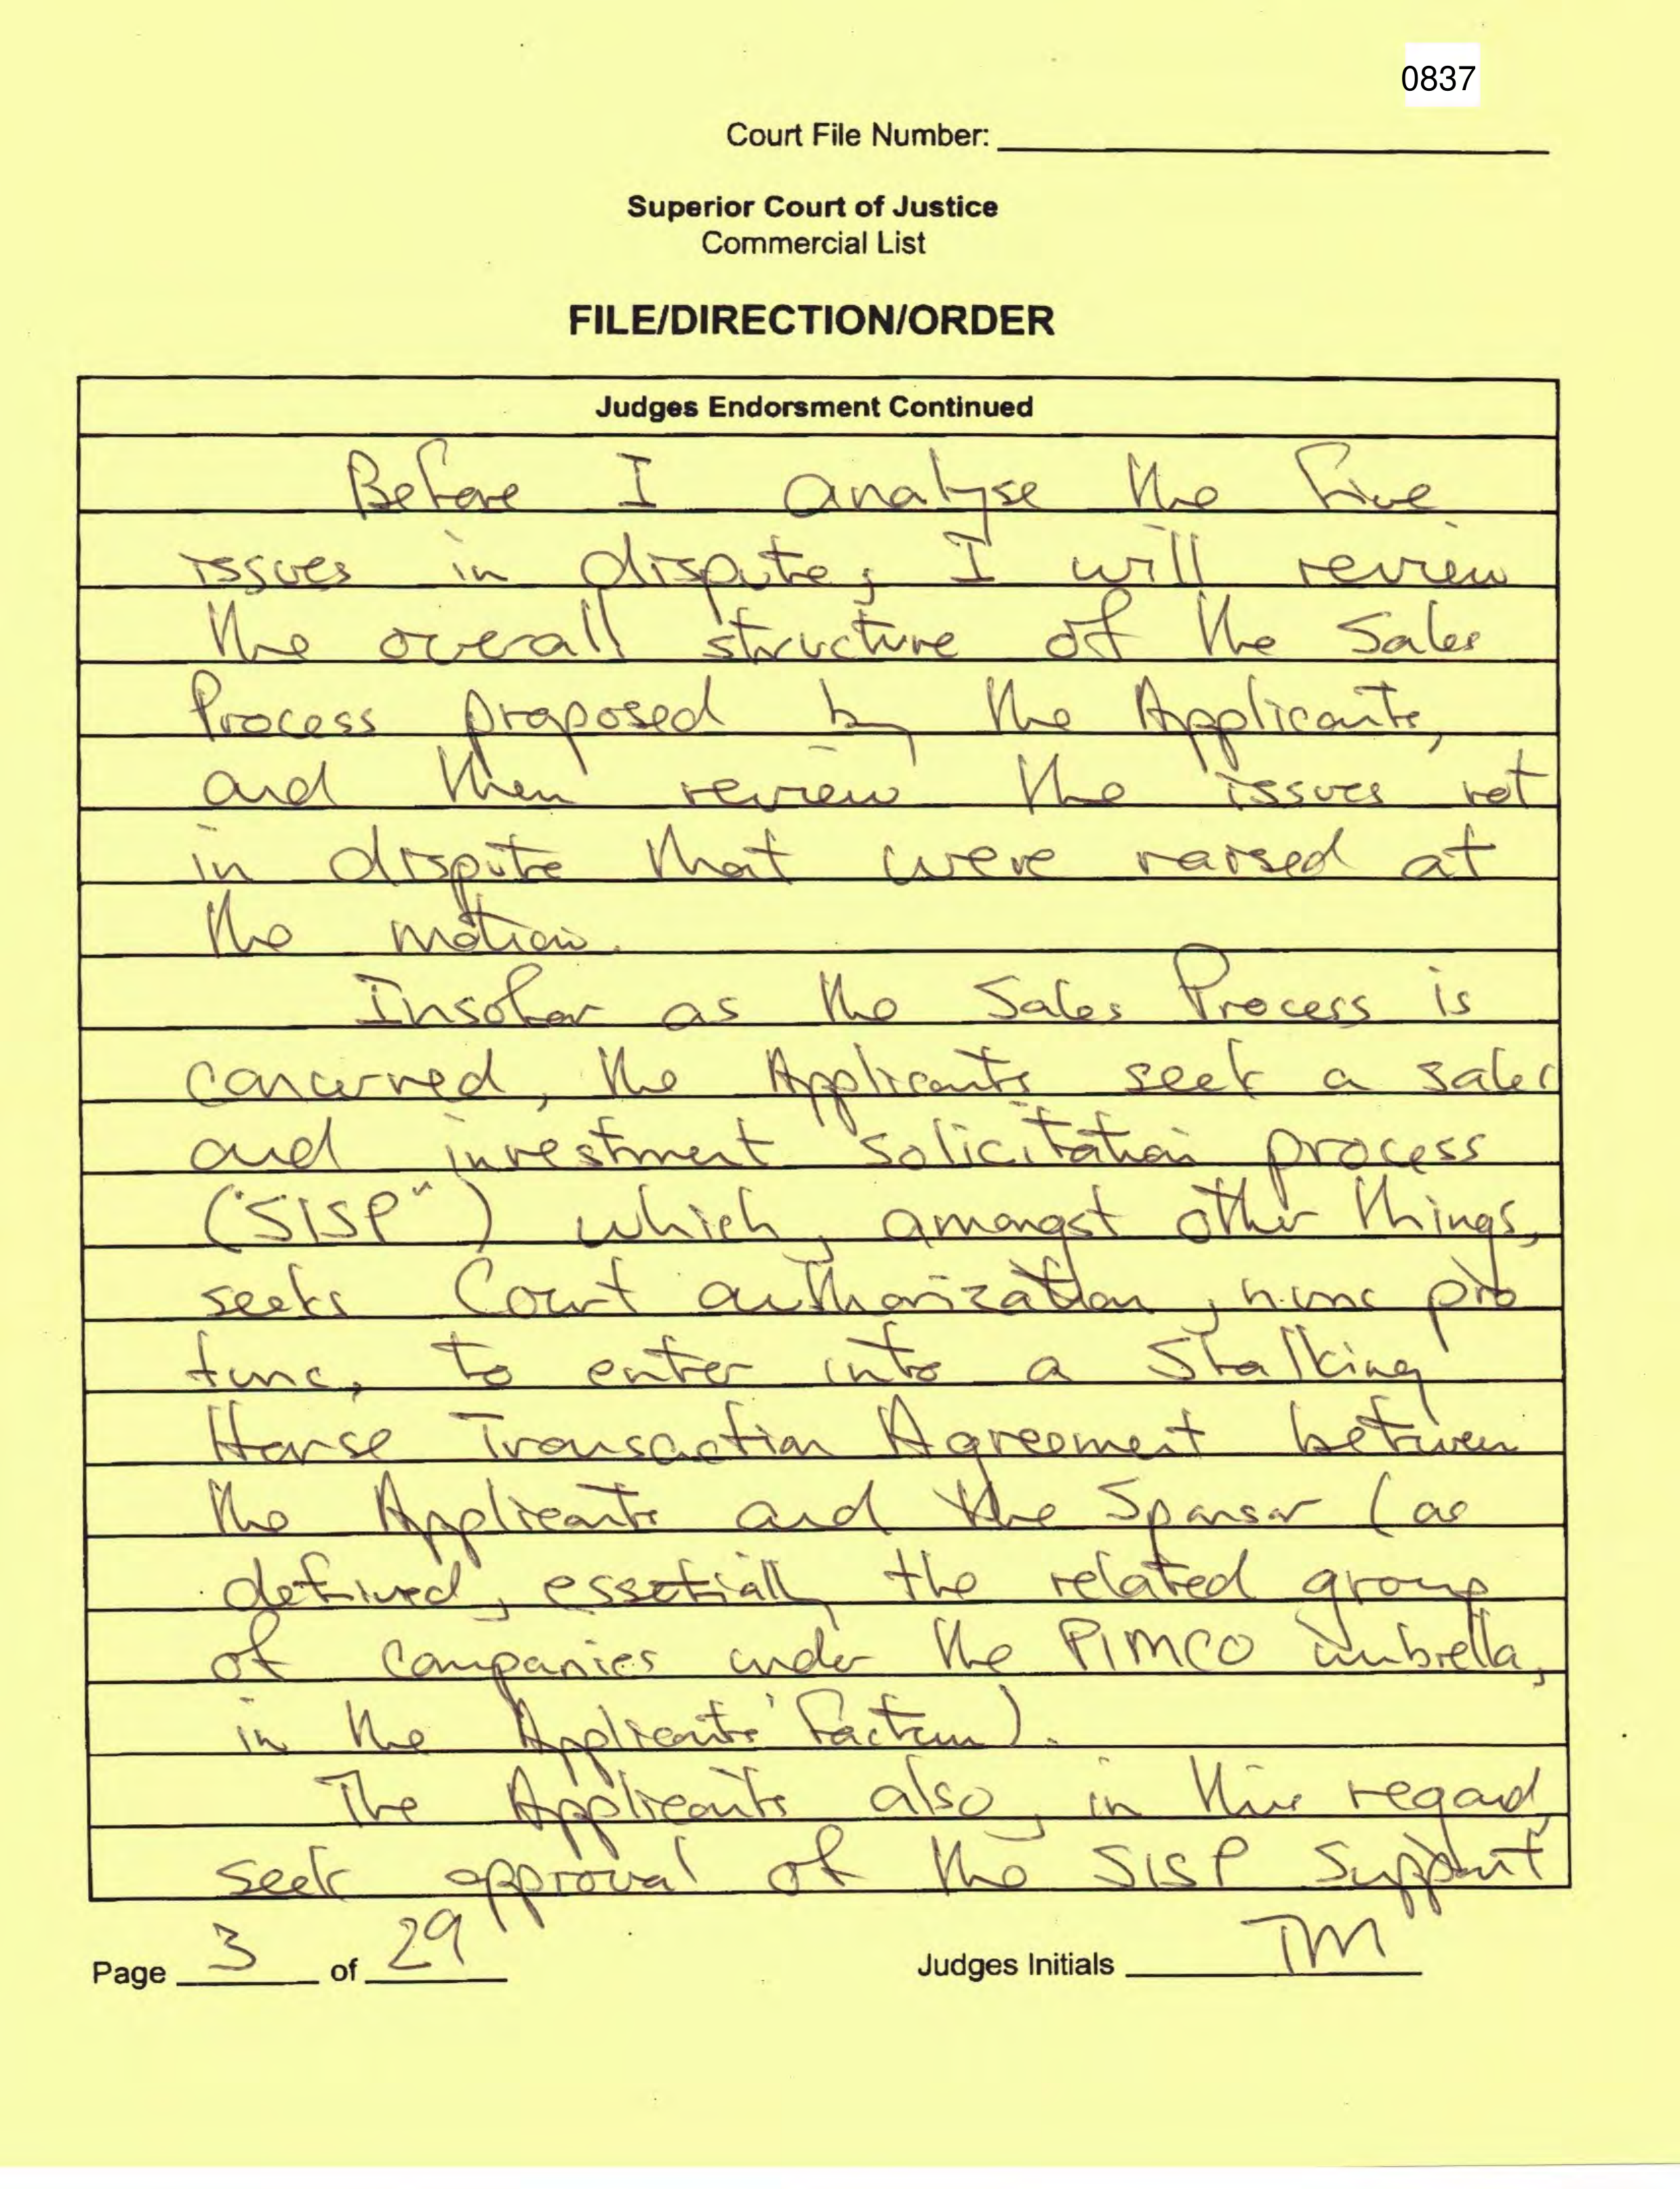 0837
Court File Number:
Superior Court of Justice
Commercial List
FILE/DIRECTION/ORDER
Judges Endorsment Continued
Before I analyse the five
issues in dispute, I will review
the overall structure of the Sales
Process proposed by the Applicants,
and then review the issues not
in dispute that were raised at
the motion.
Insofar as the Sales Process is
concerned, the Applicants seek a sales
and investment solicitation process
("SISP") which, amongst other things,
seeks Court authorization, nunc pro
tunc, to enter into a Stalking
Horse Transaction Agreement between
the Applicants and the Sponsor (as
defined, essetially the related group
of companies under the PIMCO umbrella,
in the Applicants' Factum).
The Applicants also, in this regard,
seek approval of the SISP Support
Page 3 of 29
Judges Initials TM